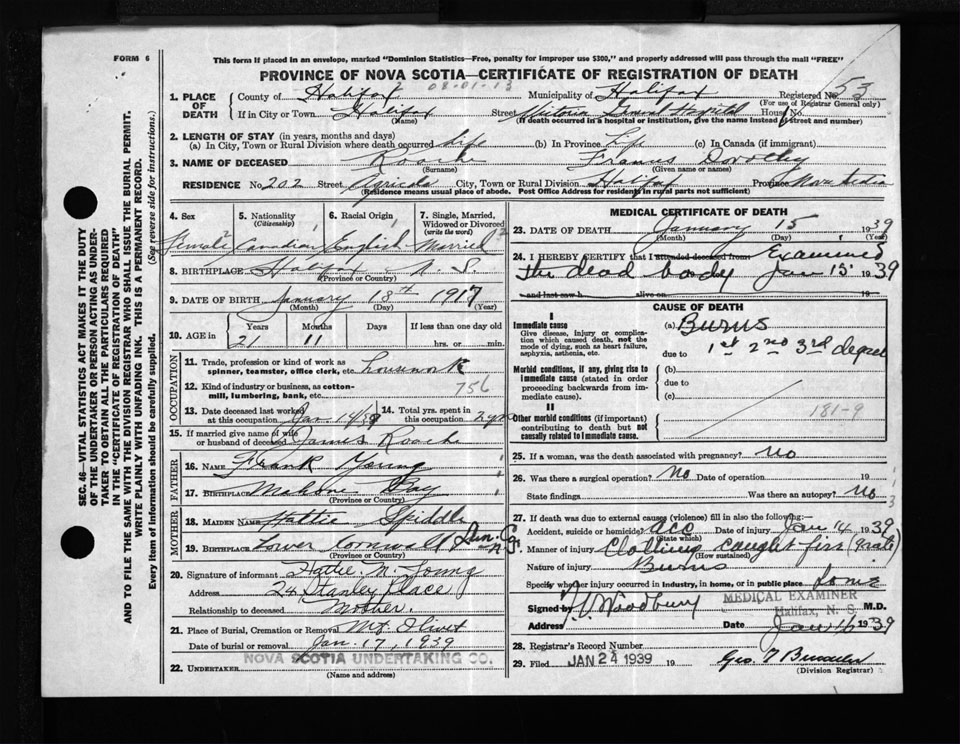 FORM 6
This form if placed in an envelope, marked "Dominion Statistics—Free, penalty for improper use $300," and properly addressed will pass through the mail "FREE"
PROVINCE OF NOVA SCOTIA—CERTIFICATE OF REGISTRATION OF DEATH
08-01-13
1. PLACE OF DEATH County of Halifax Municipality of Halifax Registered No. 53
(For use of Registrar General only)
If in City or Town Halifax Street Victoria General Hospital House No.
(Name) (If death occurred in a hospital or institution, give the name instead of street and number)
2. LENGTH OF STAY (in years, months and days)
(a) In City, Town or Rural Division where death occurred Life (b) In Province Life (c) In Canada (if immigrant)
3. NAME OF DECEASED Roache Francis Dorothy
(Surname) (Given name or names)
RESIDENCE No. 202 Street Agricola City, Town or Rural Division Halifax Province Nova Scotia
(Residence means usual place of abode. Post Office Address for residents in rural parts not sufficient)
4. Sex 5. Nationality (Citizenship) 6. Racial Origin 7. Single, Married, Widowed or Divorced (write the word)
Female Canadian English Married
8. BIRTHPLACE Halifax N. S.
(Province or Country)
9. DATE OF BIRTH January 18th 1917
(Month) (Day) (Year)
10. AGE in Years Months Days If less than one day old
21 11 hrs. or min.
OCCUPATION
11. Trade, profession or kind of work as spinner, teamster, office clerk, etc. housework
12. Kind of industry or business, as cotton-mill, lumbering, bank, etc. 756
13. Date deceased last worked at this occupation Jan 14/39 14. Total yrs. spent in this occupation 2 yrs
15. If married give name of wife or husband of deceased James Roache
FATHER
16. NAME Frank Young
17. BIRTHPLACE Mahone Bay
(Province or Country)
MOTHER
18. MAIDEN NAME Hattie Spiddle
19. BIRTHPLACE Lower Cornwall Lun. Co. N.S.
(Province or Country)
20. Signature of informant Hattie N. Young
Address 28 Stanley Place
Relationship to deceased Mother.
21. Place of Burial, Cremation or Removal Mt. Olivet
Date of burial or removal Jan. 17, 1939
22. UNDERTAKER NOVA SCOTIA UNDERTAKING CO.
(Name and address)
MEDICAL CERTIFICATE OF DEATH
23. DATE OF DEATH January 15 1939
(Month) (Day) (Year)
24. I HEREBY CERTIFY that I attended deceased from Examined
the dead body Jan 15 1939
and last saw h alive on 19
CAUSE OF DEATH
I
Immediate cause
Give disease, injury or complication which caused death, not the mode of dying, such as heart failure, asphyxia, asthenia, etc.
(a) Burns
due to 1st 2nd 3rd degree
Morbid conditions, if any, giving rise to immediate cause (stated in order proceeding backwards from immediate cause).
(b)
due to
(c)
II
Other morbid conditions (if important) contributing to death but not causally related to immediate cause.
181-9
25. If a woman, was the death associated with pregnancy? No
26. Was there a surgical operation? No Date of operation 19
State findings Was there an autopsy? No
27. If death was due to external causes (violence) fill in also the following:—
Accident, suicide or homicide? acc Date of injury Jan 14 1939
(State which)
Manner of injury Clothing caught fire
(How sustained)
Nature of injury Burns
Specify whether injury occurred in industry, in home, or in public place home
Signed by Woodbury MEDICAL EXAMINER M.D.
Halifax, N. S.
Address Date Jan 16 1939
28. Registrar's Record Number
29. Filed JAN 24 1939 19
(Division Registrar)
SEC. 46—VITAL STATISTICS ACT MAKES IT THE DUTY
OF THE UNDERTAKER OR PERSON ACTING AS UNDER-
TAKER TO OBTAIN ALL THE PARTICULARS REQUIRED
IN THE "CERTIFICATE OF REGISTRATION OF DEATH"
AND TO FILE THE SAME WITH THE DIVISION REGISTRAR WHO SHALL ISSUE THE BURIAL PERMIT.
WRITE PLAINLY WITH UNFADING INK. THIS IS A PERMANENT RECORD.
Every item of information should be carefully supplied. (See reverse side for instructions.)